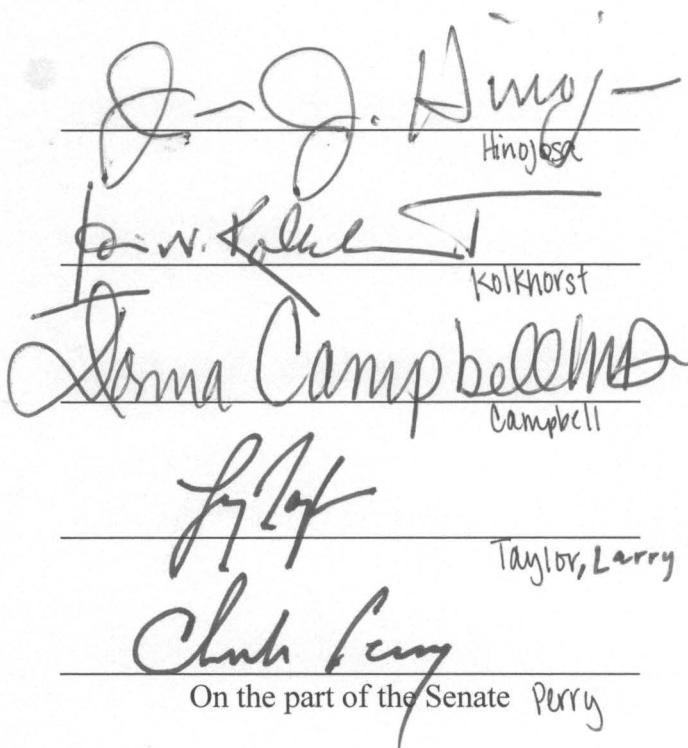 J. J. Hinoj
Hinojosa
Lois W. Kolkhorst
Kolkhorst
Donna Campbell MD
Campbell
Larry Taylor
Taylor, Larry
Charles Perry
On the part of the Senate Perry